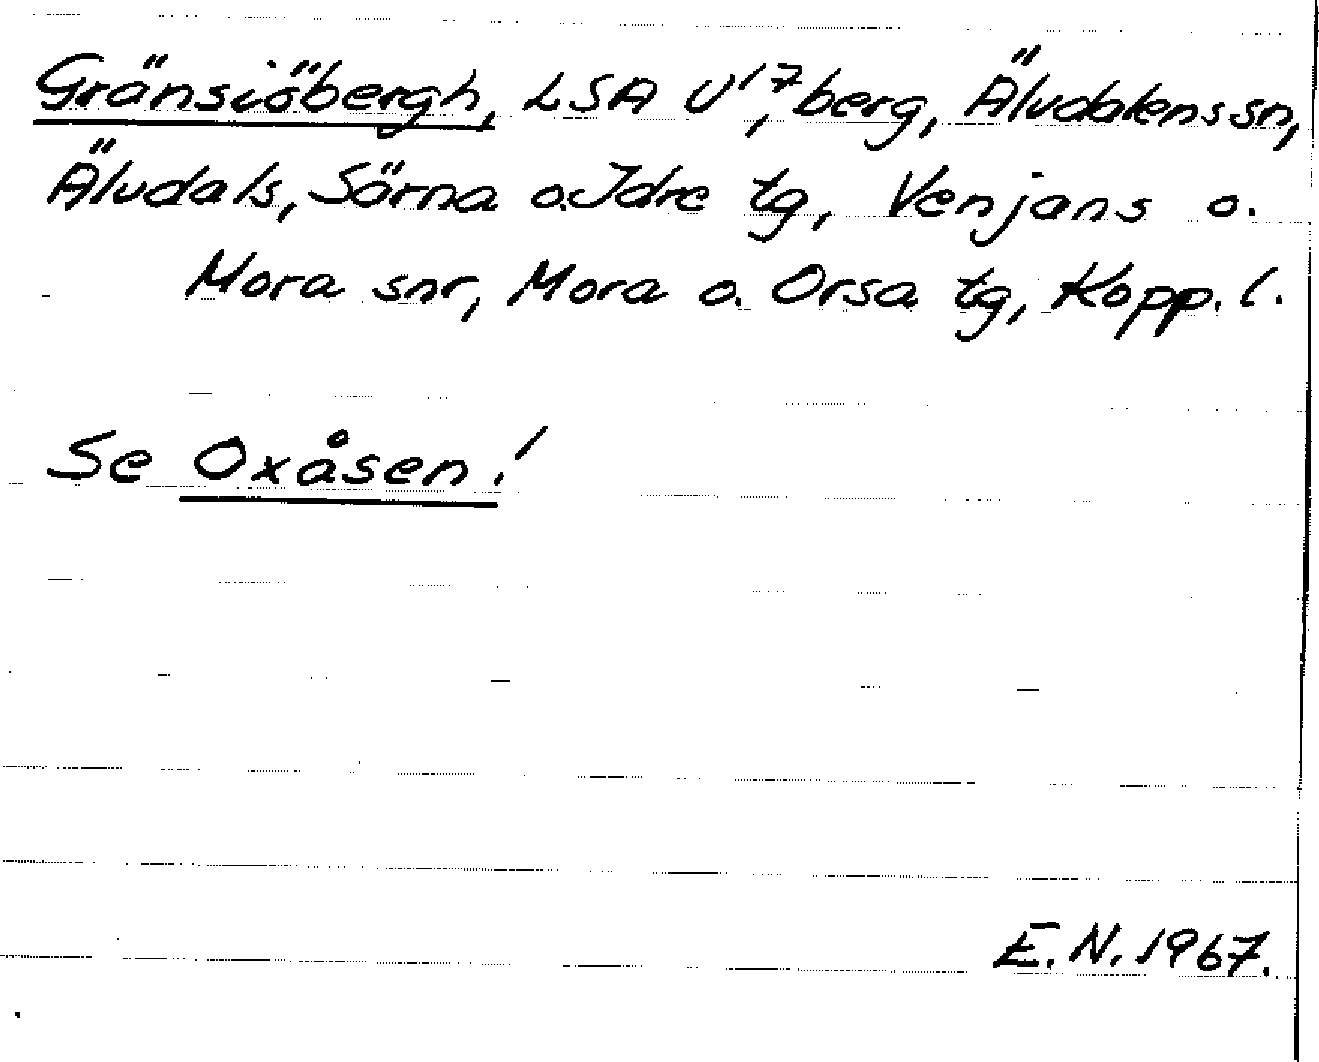 Gränsiöbergh, LSA U'17, berg, Älvdalens sn,
Älvdals, Särna o. Idre tg, Venjans o.
Mora snr, Mora o. Orsa tg, Kopp. l.
Se Oxåsen!
E.N. 1967.